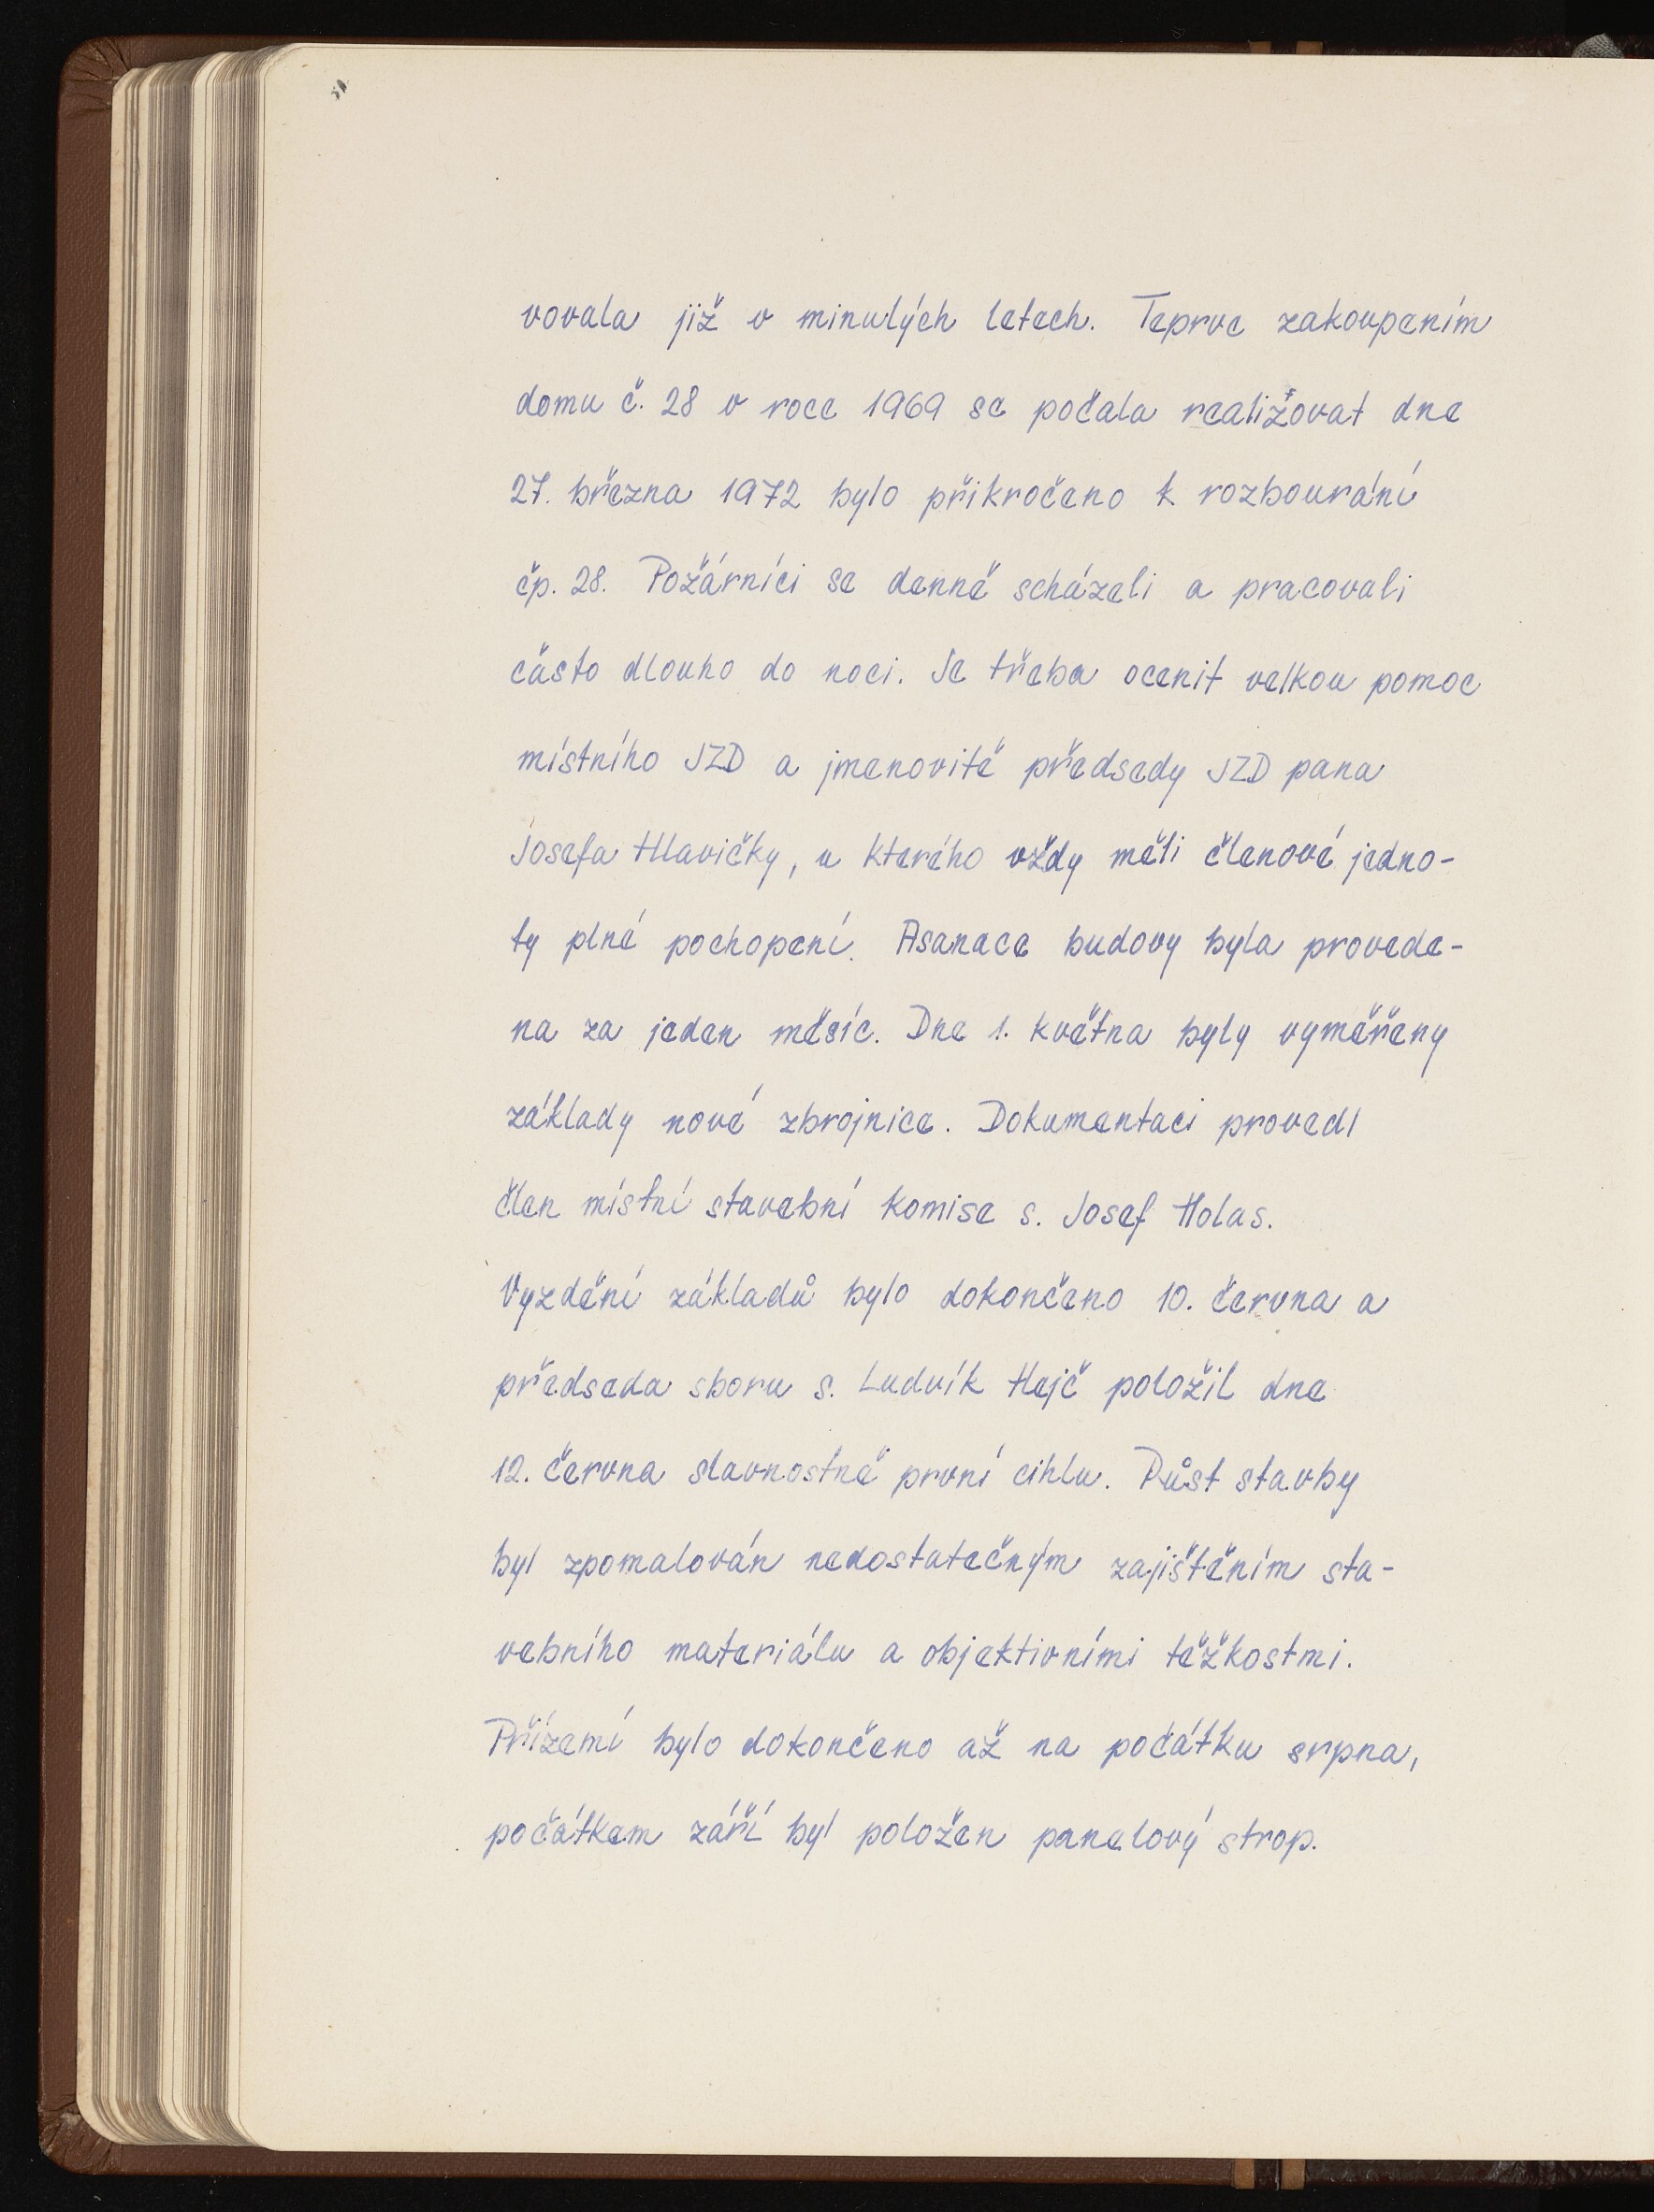 vovala již v minulých letech. Teprve zakoupením
domu č. 28 v roce 1969 se počala realižovat dne
27. března 1972 bylo přikročeno k rozbourání
čp. 28. Požárníci se denně scházeli a pracovali
často dlouho do noci. Je třeba ocenit velkou pomoc
místního JZD a jmenovitě předsedy JZD pana
Josefa Hlavičky, u kterého vždy měli členové jedno-
ty plné pochopení. Asanace budovy byla provede-
na za jeden měsíc. Dne 1. května byly vyměřeny
základy nové zbrojnice. Dokumentaci provedl
člen místní stavební komise s. Josef Holas.
Vyzdění základů bylo dokončeno 10. června a
předseda sboru s. Ludvík Hejč položil dne
12. června slavnostně první cihlu. Růst stavby
byl zpomalován nedostatečným zajištěním sta-
vebního materiálu a objektivními těžkostmi.
Přízemí bylo dokončeno až na počátku srpna,
počátkem září byl položen panelový strop.